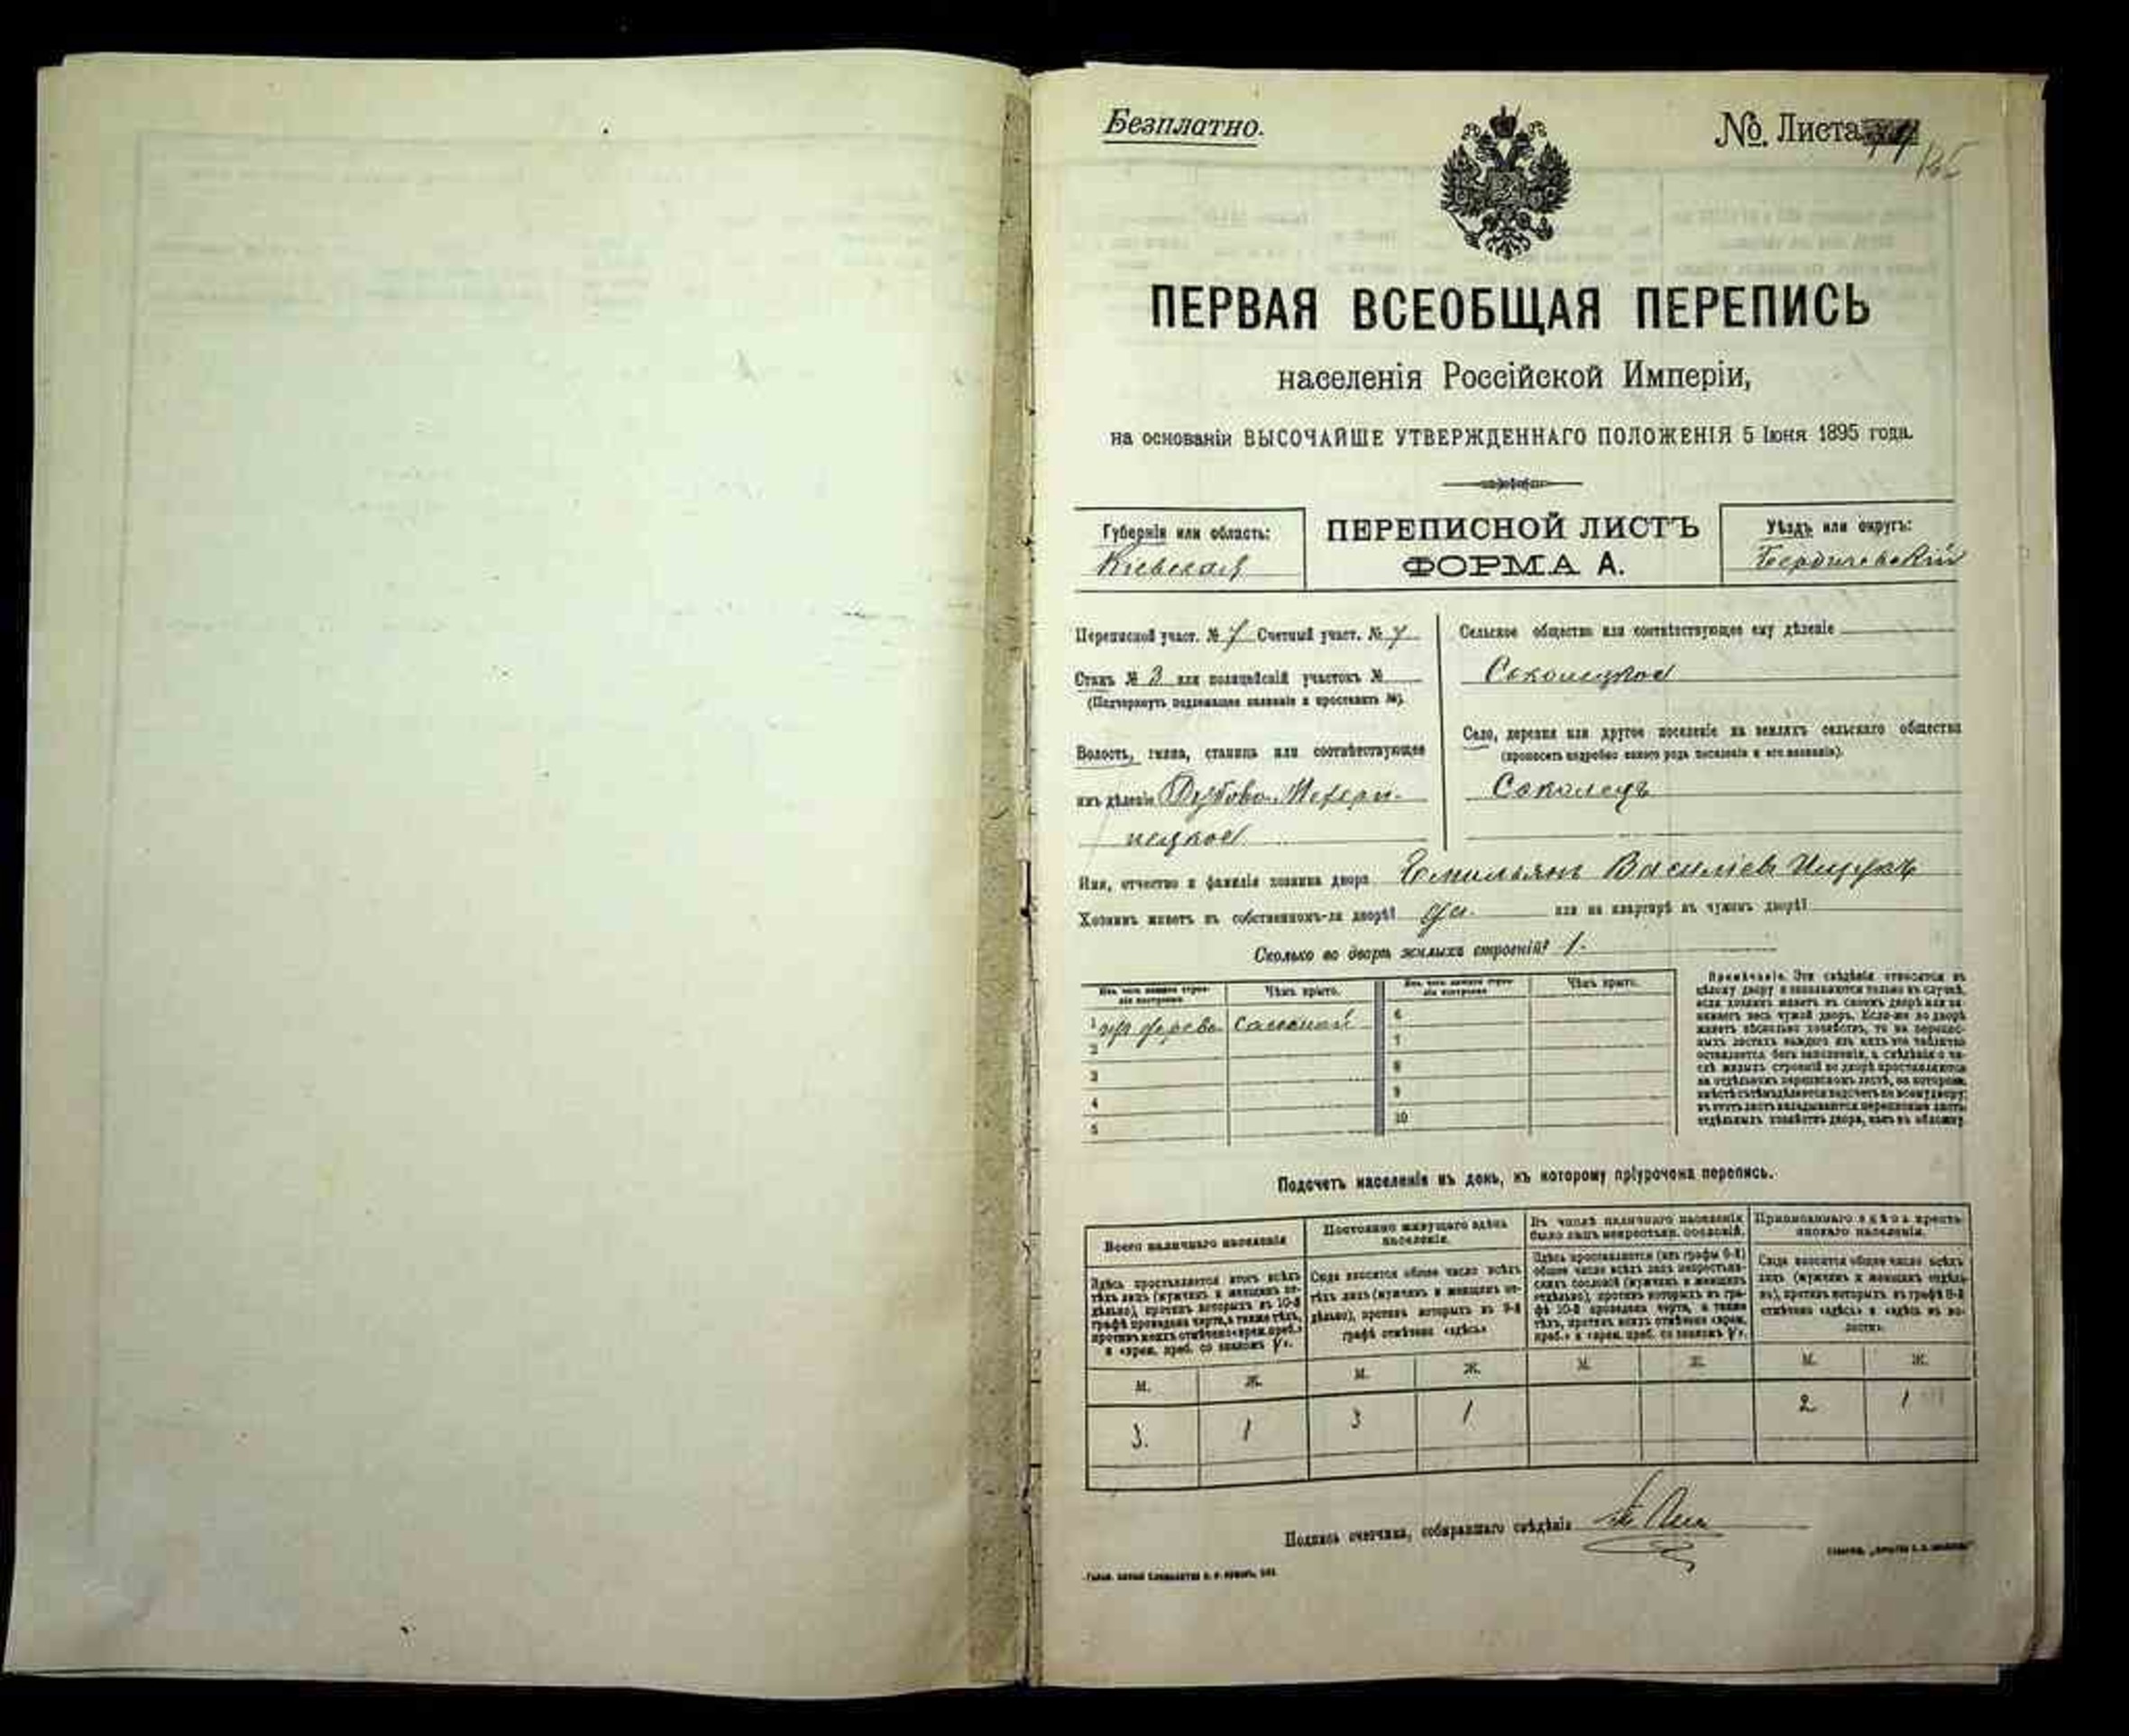 Безплатно.
№ Листа
ПЕРВАЯ ВСЕОБЩАЯ ПЕРЕПИСЬ
населенія Россійской Имперіи,
на основаніи ВЫСОЧАЙШЕ УТВЕРЖДЕННАГО ПОЛОЖЕНІЯ 5 Іюня 1895 года.
Губернія или область:
Кіевская
ПЕРЕПИСНОЙ ЛИСТЪ
ФОРМА А.
Уѣздъ или округъ:
Бердичевскій
Переписной участ. № 7 Счетный участ. № 7
Станъ № 3 или полицейскій участокъ №
(Подчеркнуть подлежащее названіе и проставить №).
Волость, гмина, станица или соотвѣтствующее
имъ дѣленіе Дубово-Мехери-
нецкое
Сельское общество или соотвѣтствующее ему дѣленіе
Соколецкое
Село, деревня или другое поселеніе на земляхъ сельскаго общества
(прописать подробно какого рода поселеніе и его названіе).
Соколецъ
Имя, отчество и фамилія хозяина двора Емильянъ Василіевъ Ищукъ
Хозяинъ живетъ въ собственномъ-ли дворѣ? да. или на квартирѣ въ чужомъ дворѣ?
Сколько во дворѣ жилыхъ строеній? 1.
Изъ чего каждое строеніе построено
Чѣмъ крыто.
Изъ чего каждое строеніе построено
Чѣмъ крыто.
1 изъ дерева соломой
2
3
4
5
6
7
8
9
10
Примѣчаніе. Эти свѣдѣнія относятся къ
цѣлому двору и показываются только въ случаѣ,
если хозяинъ живетъ въ своемъ дворѣ или за-
нимаетъ весь чужой дворъ. Если-же во дворѣ
живетъ нѣсколько хозяйствъ, то на перепис-
ныхъ листахъ каждаго изъ нихъ эта табличка
оставляется безъ заполненія, а свѣдѣнія о чи-
слѣ жилыхъ строеній во дворѣ проставляются
на отдѣльномъ переписномъ листѣ, на которомъ
вмѣстѣ съ тѣмъ дѣлается подсчетъ по всему двору;
въ этотъ листъ вкладываются переписные листы
отдѣльныхъ хозяйствъ двора, какъ въ обложку.
Подсчетъ населенія въ день, къ которому пріурочена перепись.
Всего наличнаго населенія
Здѣсь проставляется итогъ всѣхъ
тѣхъ лицъ (мужчинъ и женщинъ от-
дѣльно), противъ которыхъ въ 10-й
графѣ проведена черта, а также тѣхъ,
противъ коихъ отмѣчено «врем. преб.»
и «врем. преб. со знакомъ V».
Постоянно живущаго здѣсь
населенія.
Сюда вносится общее число всѣхъ
тѣхъ лицъ (мужчинъ и женщинъ от-
дѣльно), противъ которыхъ въ 9-й
графѣ отмѣчено «здѣсь»
Въ числѣ наличнаго населенія
было лицъ некрестьян. сословій.
Здѣсь проставляется (изъ графы 6-й)
общее число всѣхъ лицъ некрестьян-
скихъ сословій (мужчинъ и женщинъ
отдѣльно), противъ которыхъ въ гра-
фѣ 10-й проведена черта, а также
тѣхъ, противъ коихъ отмѣчено «врем.
преб.» и «врем. преб. со знакомъ V».
Приписаннаго здѣсь кресть-
янскаго населенія.
Сюда вносится общее число всѣхъ
лицъ (мужчинъ и женщинъ отдѣль-
но), противъ которыхъ въ графѣ 8-й
отмѣчено «здѣсь» и «здѣсь въ во-
лости».
М. Ж. М. Ж. М. Ж. М. Ж.
3. 1 3 1 2 1
Подпись счетчика, собиравшаго свѣдѣнія